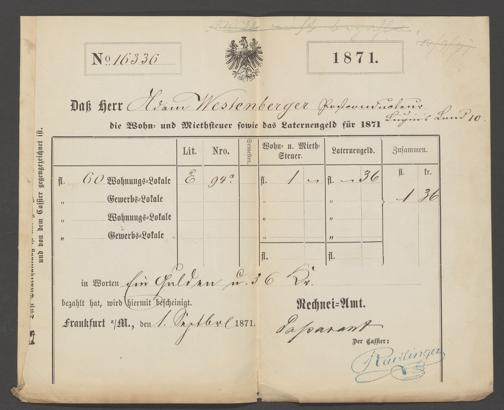 No 16336
1871.
Daß Herr Adam Westenberger Postconducteur
die Wohn- und Miethsteuer sowie das Laternengeld für 1871
Lit. Nro. Wohn- u. Mieth-Steuer. Laternengeld. Zusammen.
fl. kr.
fl. 60 Wohnungs-Lokale E 94a fl. 1 „ fl. „ 36
1 36
„ Gewerbs-Lokale „ „
„ Wohnungs-Lokale „ „
„ Gewerbs-Lokale „ „
fl. fl.
in Worten Ein Gulden u. 36 Kr.
bezahlt hat, wird hiermit bescheinigt.
Rechnei-Amt.
Frankfurt a/M., den 1. Septbr 1871.
Passavant
Der Cassier:
und von dem Cassier gegengezeichnet ist.